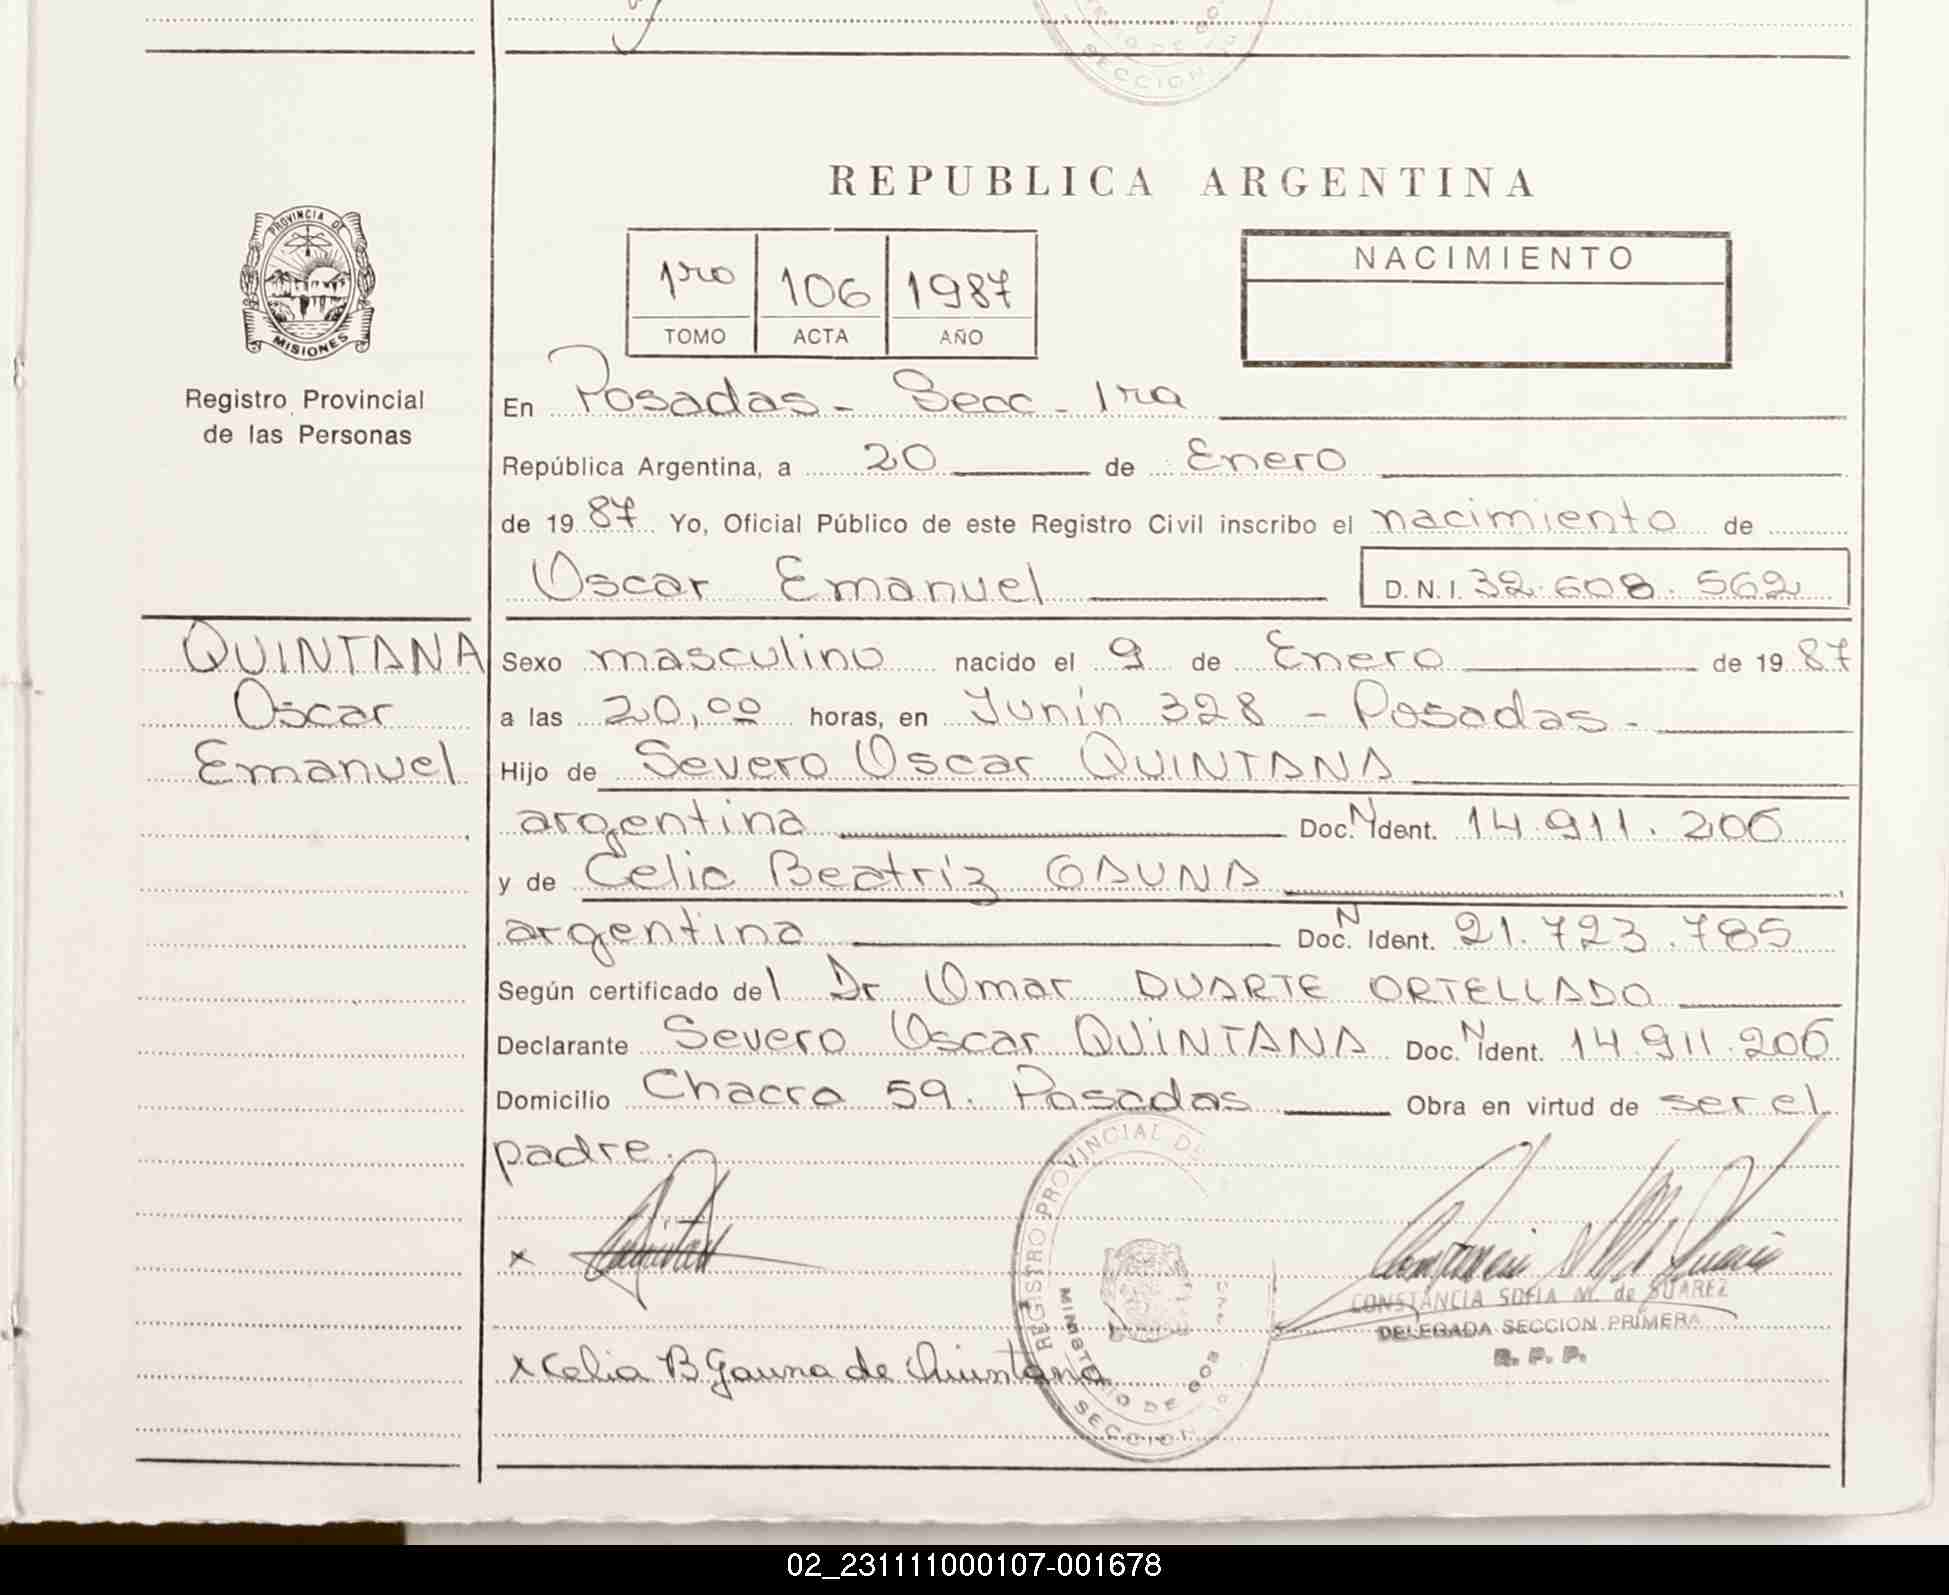 REPUBLICA ARGENTINA
PROVINCIA DE
MISIONES
Registro Provincial
de las Personas
1ro 106 1987
TOMO ACTA AÑO
NACIMIENTO
En Posadas - Secc - 1ra
República Argentina, a 20 de Enero
de 1987 Yo, Oficial Público de este Registro Civil inscribo el nacimiento de
Oscar Emanuel D.N.I. 32.608.562
QUINTANA
Oscar
Emanuel
Sexo masculino nacido el 9 de Enero de 1987
a las 20,00 horas, en Junín 328 - Posadas -
Hijo de Severo Oscar QUINTANA
argentina Doc. N Ident. 14.911.206
y de Celia Beatriz GAUNA
argentina Doc. N Ident. 21.723.785
Según certificado del Dr Omar DUARTE ORTELLADO
Declarante Severo Oscar QUINTANA Doc. N Ident. 14.911.206
Domicilio Chacra 59. Posadas Obra en virtud de ser el
padre.
REGISTRO PROVINCIAL DE
MINISTERIO DE GOB
SECCION 1
x
CONSTANCIA SOFIA M. de SUAREZ
DELEGADA SECCION PRIMERA
R. P. P.
x Celia B Gauna de Quintana
02_231111000107-001678